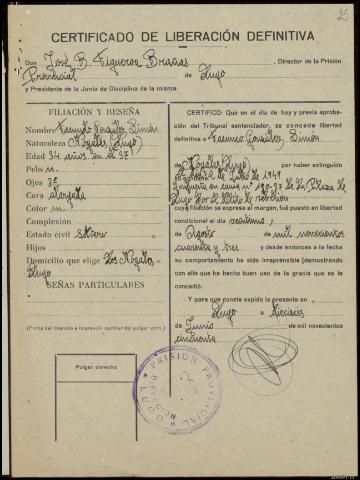 25
CERTIFICADO DE LIBERACIÓN DEFINITIVA
Don José B. Figueroa Brañas, Director de la Prisión
Provincial de Lugo
y Presidente de la Junta de Disciplina de la misma.
FILIACIÓN Y RESEÑA
Nombre Facundo González Simón
Naturaleza Nogales (Lugo)
Edad 34 años en el 37
Pelo n.
Ojos
Cara alargada
Color m
Complexión
Estado civil soltero
Hijos
Domicilio que elige Los Nogales
Lugo
SEÑAS PARTICULARES
(Firma del liberado e impresión dactilar del pulgar drch.)
Pulgar derecho
CERTIFICO: Que en el día de hoy y previa aprobación
del Tribunal sentenciador, se concede libertad
definitiva a Facundo González Simón
de Nogales (Lugo) por haber extinguido
el día de Julio de 1949
impuesta en causa nº de la Plaza de
Lugo por el delito de rebelión
cuya filiación se expresa al margen, fué puesto en libertad
condicional el día veintiuno,
de Agosto de mil novecientos
cuarenta y tres y desde entonces a la fecha
su comportamiento ha sido irreprensible demostrando
con ello que ha hecho buen uso de la gracia que se le
concedió.
Y para que conste expido la presente en
Lugo a dieciseis
de Junio de mil novecientos
cincuenta
PRISIÓN PROVINCIAL
DIRECCIÓN
LUGO